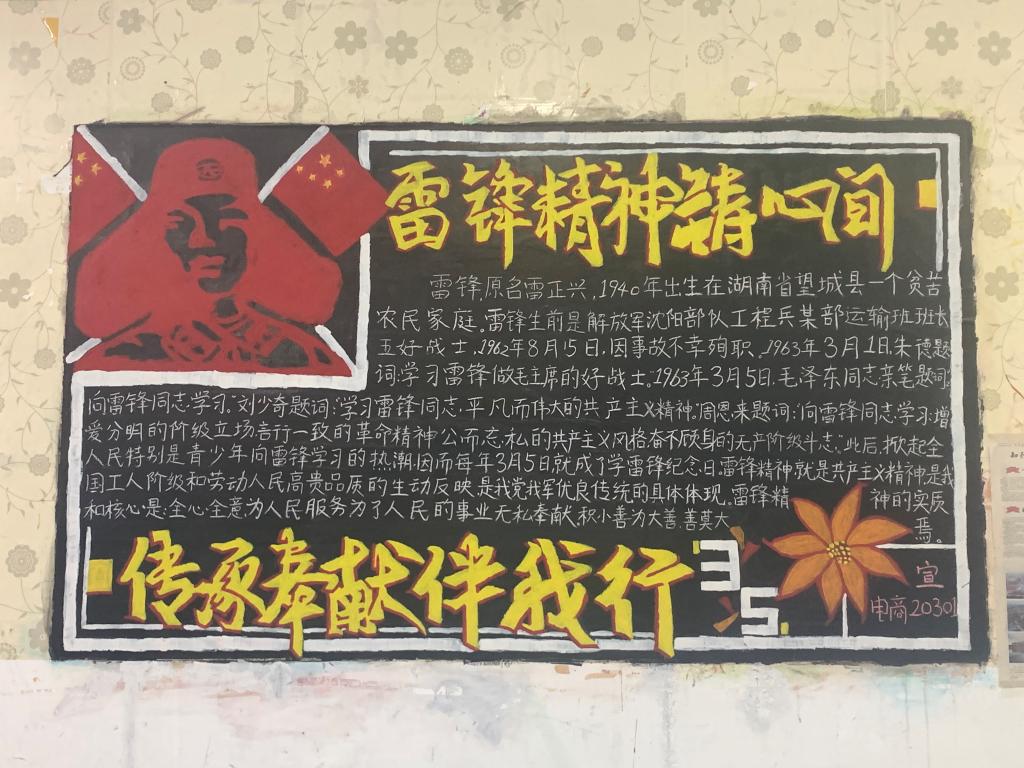 雷锋精神铸心间
雷锋,原名雷正兴,1940年出生在湖南省望城县一个贫苦
农民家庭。雷锋生前是解放军沈阳部队工程兵某部运输班班长
五好战士.1962年8月15日,因事故不幸殉职.1963年3月1日.朱德题
词:学习雷锋做毛主席的好战士."1963年3月5日.毛泽东同志亲笔题词:
向雷锋同志学习."刘少奇题词:"学习雷锋同志.平凡而伟大的共产主义精神."周恩来题词:"向雷锋同志学习:憎
爱分明的阶级立场言行一致的革命精神公而忘私的共产主义风格奋不顾身的无产阶级斗志."此后.掀起全
人民特别是青少年向雷锋学习的热潮.因而每年3月5日就成了学雷锋纪念日.雷锋精神就是共产主义精神是我
国工人阶级和劳动人民高贵品质的生动反映.是我党我军优良传统的具体体现.雷锋精神的实质
和核心是:全心全意为人民服务为了人民的事业无私奉献.积小善为大善.善莫大焉。
传承奉献伴我行
3
5.
宣
电商20301